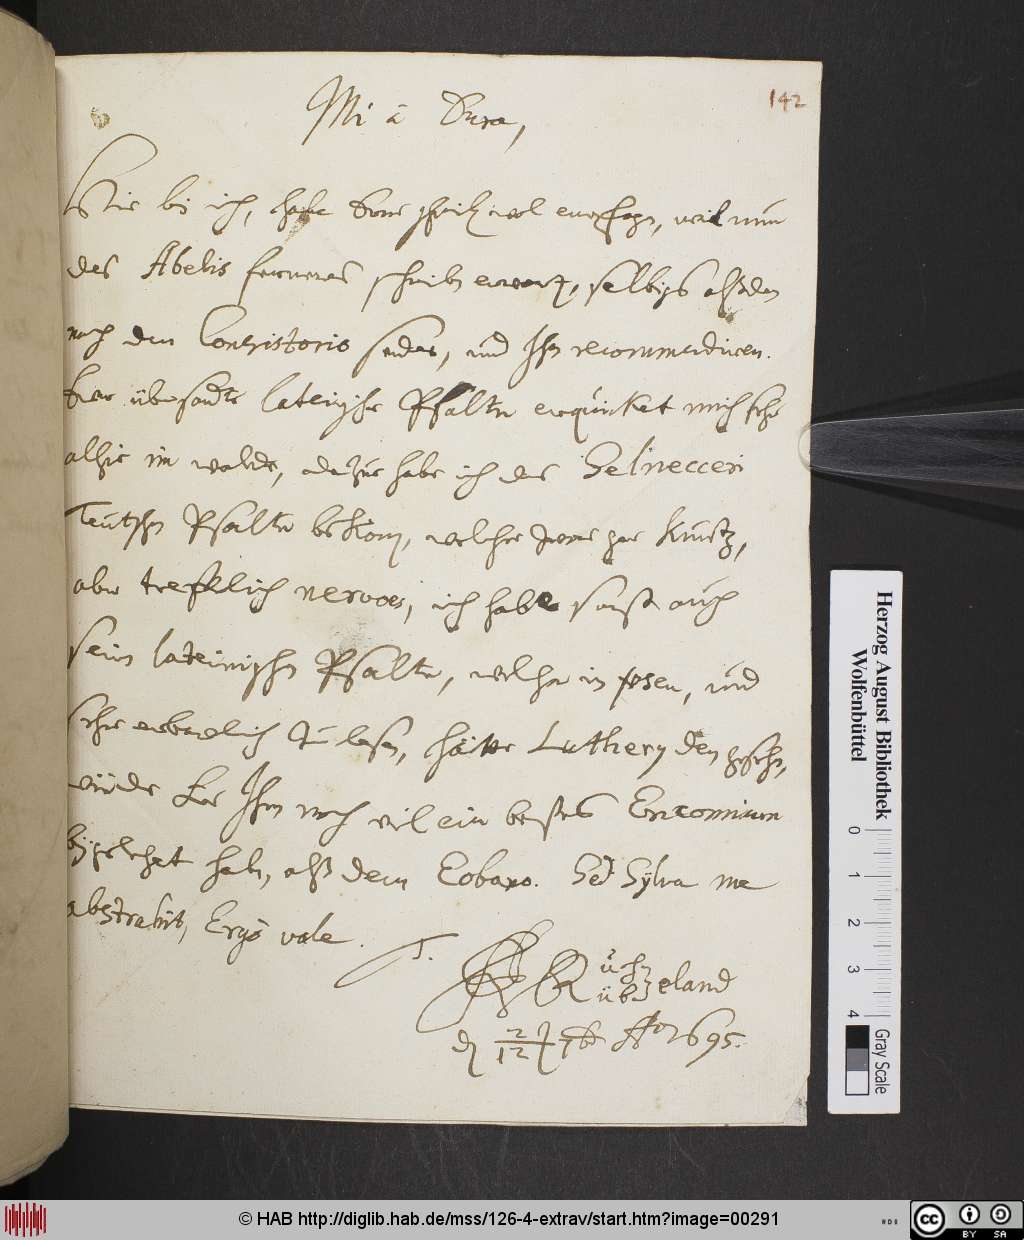 142
Mi â Dura,
hie bis ich, habe Sone wol empfagn, weil nun
des Abelis ferneres schreibn erwart, selbigs alßdan
nach den Consistorio senden, und Ihn recommendiren.
Die übersandte lateinische Psaltr erquicket mich sehr
alhie im walde, dazue habe ich des Selnecceri
Teutschn Psaltr bekom, welcher zwar gar kurtz,
aber trefflich nervoes, ich habe sonst auch
sein lateinischn Psaltr, welcher in prosen, und
sehr erbawlich zu lesen, hätte Lutherus den gesehn,
würde Er Ihm noch viel ein bessers Encomium
beygeleget habn, alß dem Eobano. Sed Sylva me
abstrahit, Ergo vale.
T.
üch eland
üb
d 22/12 7b Ao 1695.
Herzog August Bibliothek
Wolfenbüttel
0 1 2 3 4
Gray Scale
© HAB http://diglib.hab.de/mss/126-4-extrav/start.htm?image=00291
cc BY SA